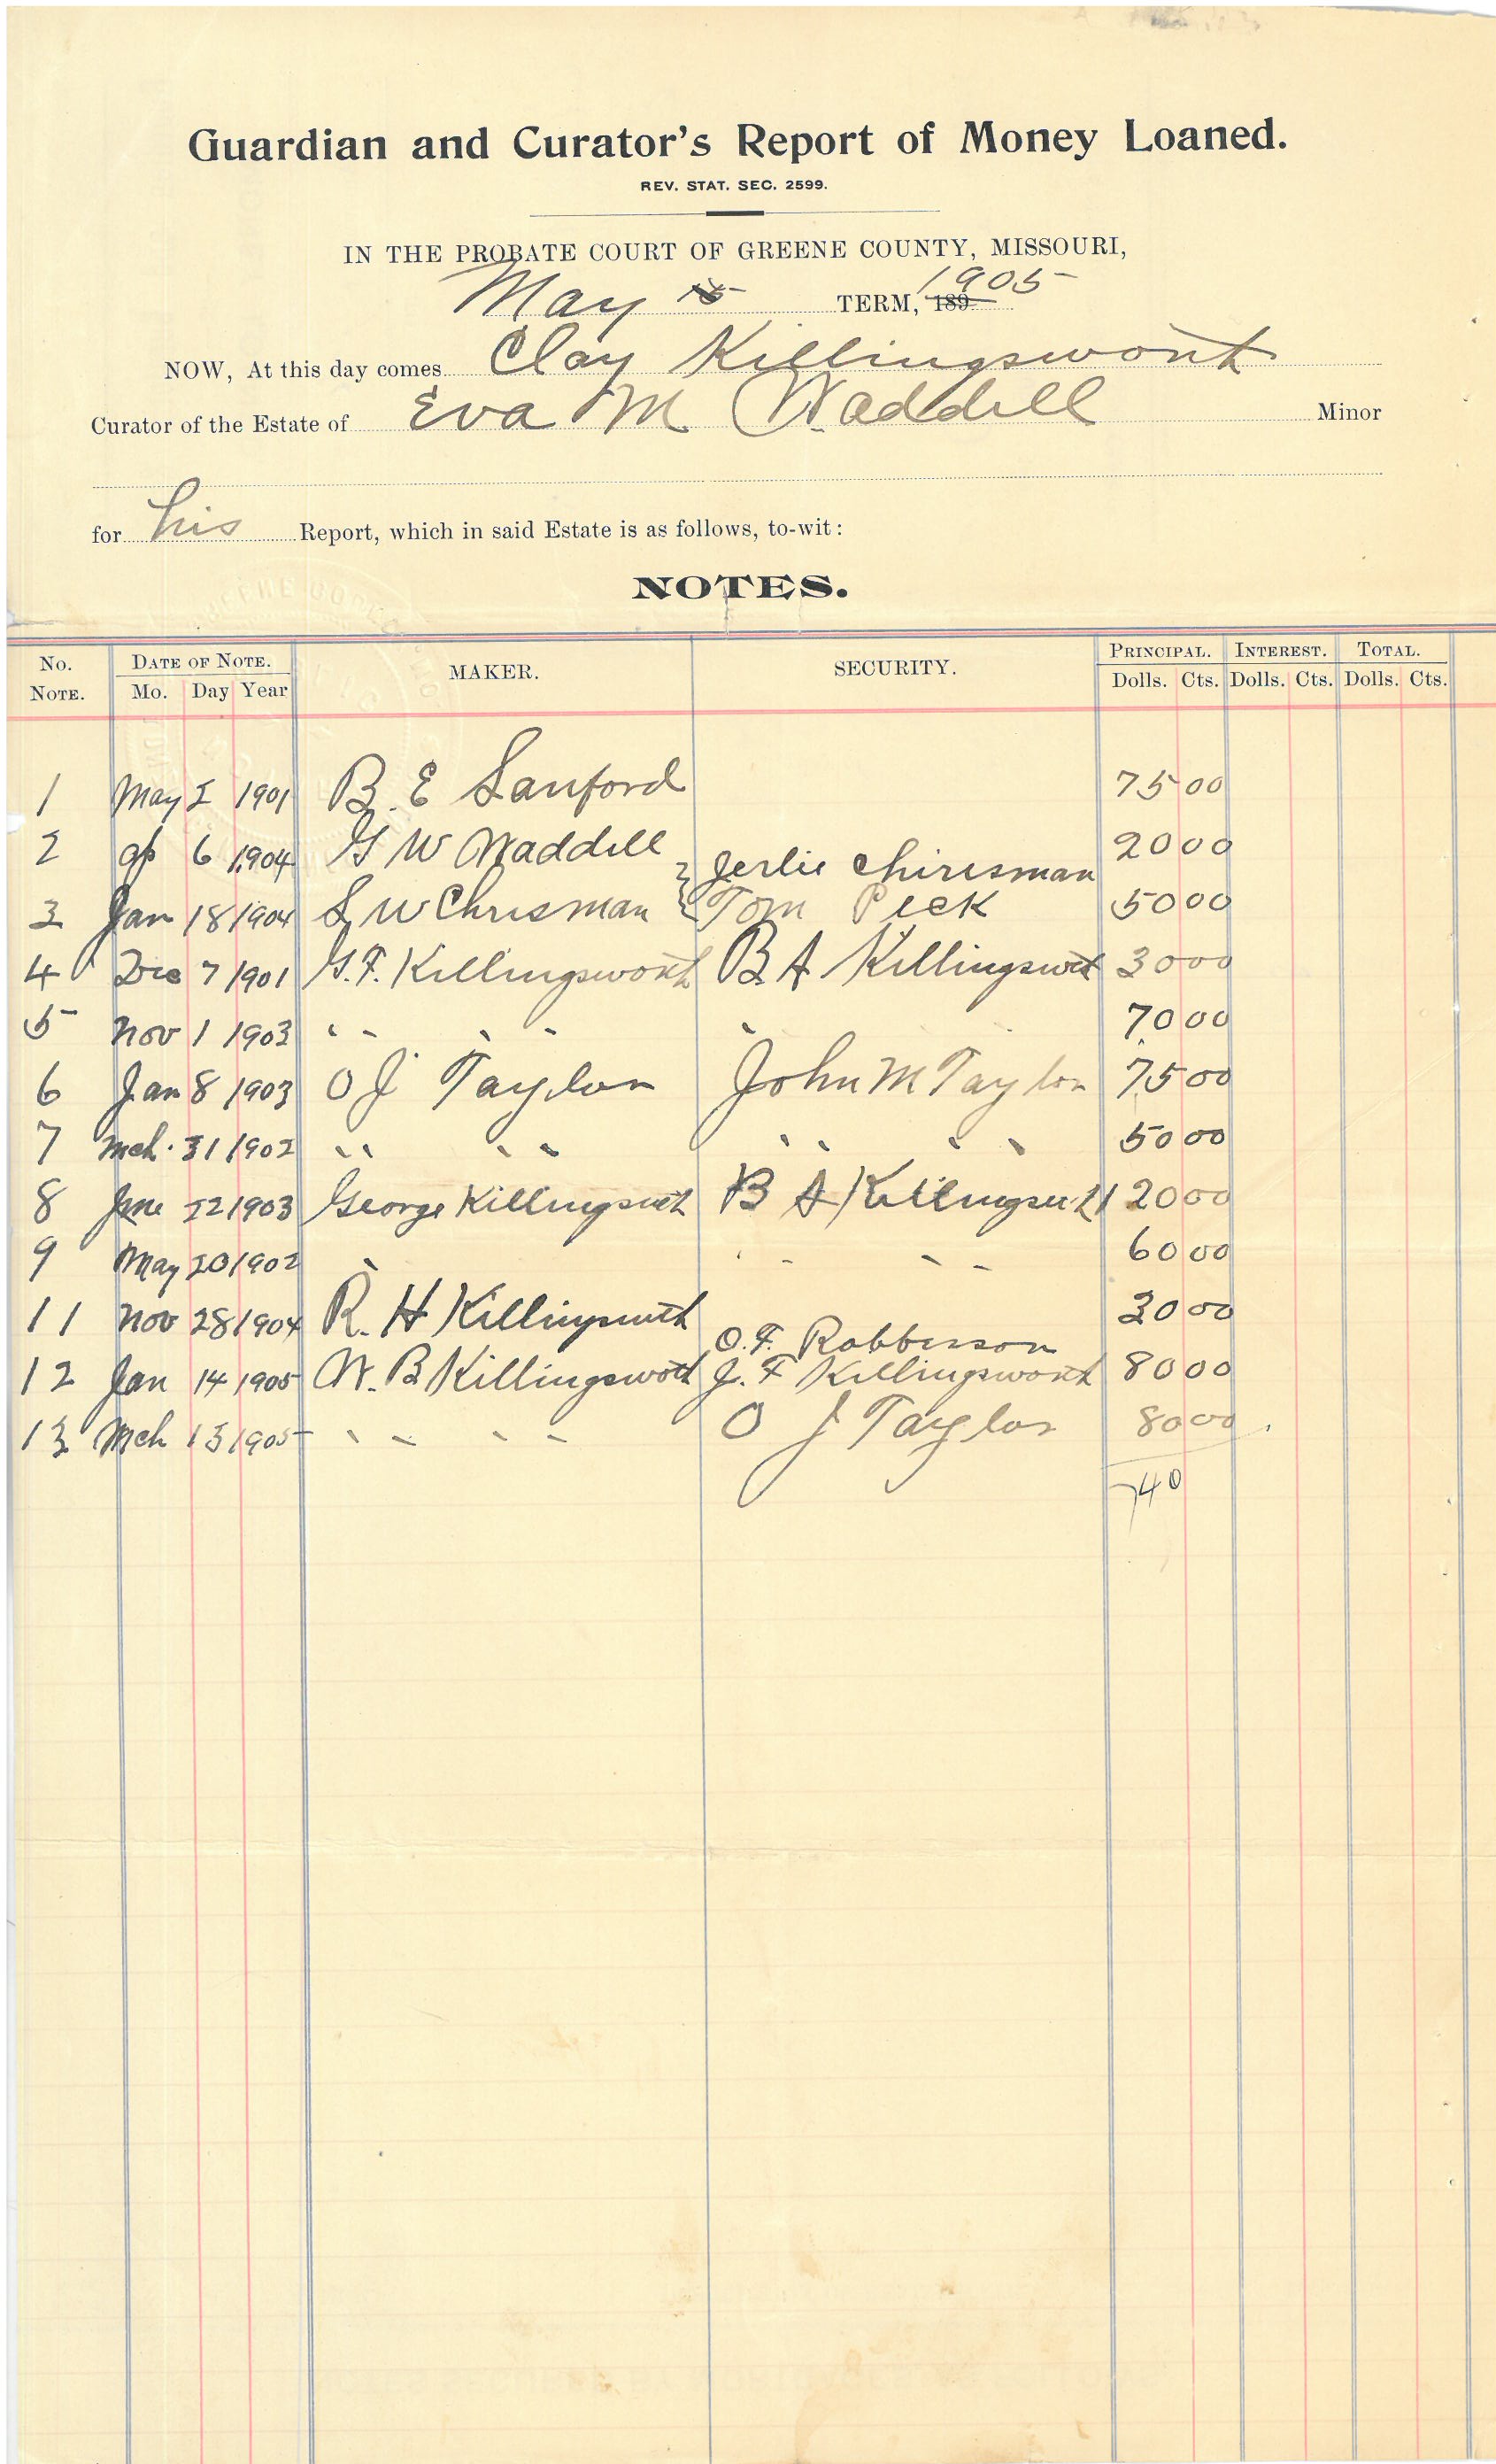 Guardian and Curator's Report of Money Loaned.
REV. STAT. SEC. 2599.
IN THE PROBATE COURT OF GREENE COUNTY, MISSOURI,
May 15 TERM, 189 1905
NOW, At this day comes Clay Killingswort
Curator of the Estate of Eva M Waddill Minor
for his Report, which in said Estate is as follows, to-wit:
NOTES.
No. NOTE. DATE OF NOTE. Mo. Day Year MAKER. SECURITY. PRINCIPAL. Dolls. Cts. INTEREST. Dolls. Cts. TOTAL. Dolls. Cts.
1 May 2 1901 B. E Sanford 75 00
2 ap 6 1904 G W Waddill 20 00
Jerlie Chirisman
3 Jan 18 1904 S W Chrisman Tom Peck 50 00
4 Dec 7 1901 G. F. Killingsworth B A Killingswot 30 00
5 Nov 1 1903 " " " " 70 00
6 Jan 8 1903 O J Taylor John M Taylor 75 00
7 Mch. 31 1902 " " " " " " 50 00
8 June 22 1903 George Killingswoth B A Killingswoth 120 00
9 May 20 1902 " " " " 60 00
11 Nov 28 1904 R. H Killingsworth 30 00
O. F. Robberson
12 Jan 14 1905 W. B Killingswoth J. F Killingsworth 80 00
13 Mch 13 1905 " " " " O J Taylor 80 00
740